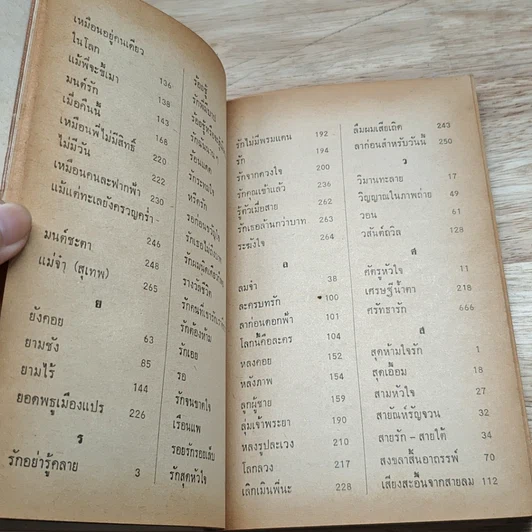 เหมือนอยู่คนเดียว
ในโลก 136
แม้พี่จะขี้เมา 138
มนต์รัก 143
เมื่อคืนนี้ 168
เหมือนพี่ไม่มีสิทธิ์ 220
ไม่มีวัน 222
เหมือนคนละฟากฟ้า 230
แม้แต่ทะเลยังครวญคร่ำ
246
มนต์ชะตา 248
แม่จ๋า (สุเทพ) 265
ย
ยังคอย 63
ยามชัง 85
ยามไร้ 144
ยอดพธูเมืองแปร 226
ร
รักอย่ารู้คลาย 3
รักเอย
รอ
รักจนขาดใจ
เรือนแพ
รอยรักรอยเล็บ
รักสุดหัวใจ
รักไม่มีพรมแดน 192
รัก 194
รักจากดวงใจ 200
รักคุณเข้าแล้ว 236
รู้ตัวเมื่อสาย 262
รักเธอล้านกว่าบาท 263
ระฆังใจ 264
ล
ลมจ๋า 38
ละครบทรัก 100
ลาก่อนดอกฟ้า 101
โลกนี้คือละคร 104
หลงคอย 152
หลังภาพ 154
ลูกผู้ชาย 159
ลุ่มเจ้าพระยา 190
หลงรูปละเวง 210
โลกลวง 217
เลิกเมินพี่นะ 228
ลืมผมเสียเถิด 243
ลาก่อนสำหรับวันนี้ 250
ว
วิมานทะลาย 17
วิญญาณในภาพถ่าย 49
วอน 61
วสันต์ถวิล 128
ศ
ศัตรูหัวใจ 11
เศรษฐีน้ำตา 218
ศรัทธารัก 666
ส
สุดห้ามใจรัก 1
สุดเอื้อม 18
สามหัวใจ 27
สายัณห์รัญจวน 32
สายรัก - สายใต้ 34
สงขลาสิ้นอาถรรพ์ 70
เสียงสะอื้นจากสายลม 112